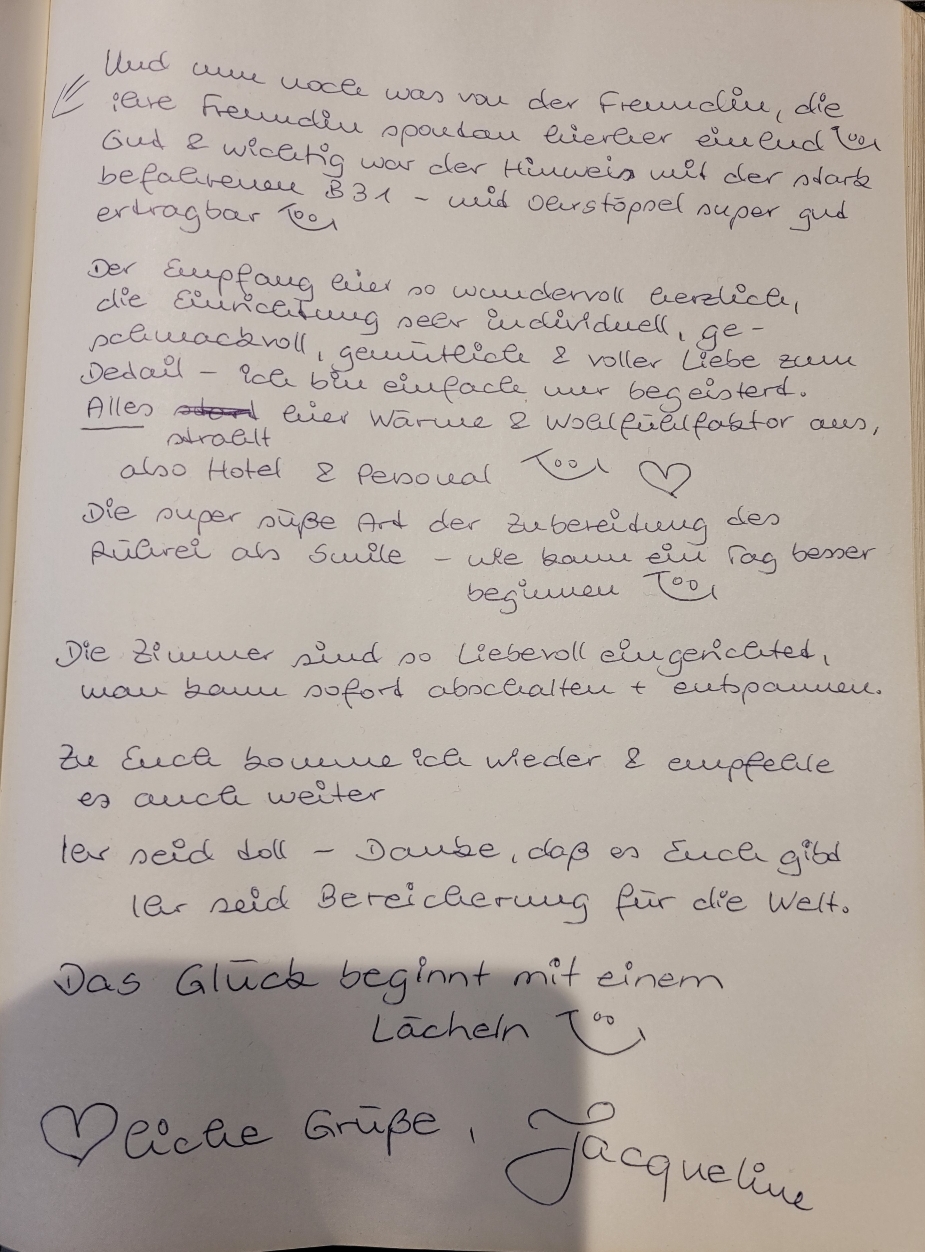 Und nun noch was von der Freundin, die
ihre Freundin spontan hierher einlud
Gut & wichtig war der Hinweis mit der stark
befahrenen B31 – mit Ohrstöpsel super gut
ertragbar
Der Empfang hier so wundervoll herzlich,
die Einrichtung sehr individuell, ge-
schmackvoll, gemütlich & voller Liebe zum
Detail – ich bin einfach nur begeistert.
Alles hier Wärme & Wohlfühlfaktor aus,
strahlt
also Hotel & Personal ♡
Die super süße Art der Zubereitung des
Rührei als Smile – wie kann ein Tag besser
beginnen
Die Zimmer sind so liebevoll eingerichtet,
man kann sofort abschalten + entspannen.
Zu Euch komme ich wieder & empfehle
es auch weiter
Ihr seid toll – Danke, daß es Euch gibt
Ihr seid Bereicherung für die Welt.
Das Glück beginnt mit einem
Lächeln
♡liche Grüße, Jacqueline